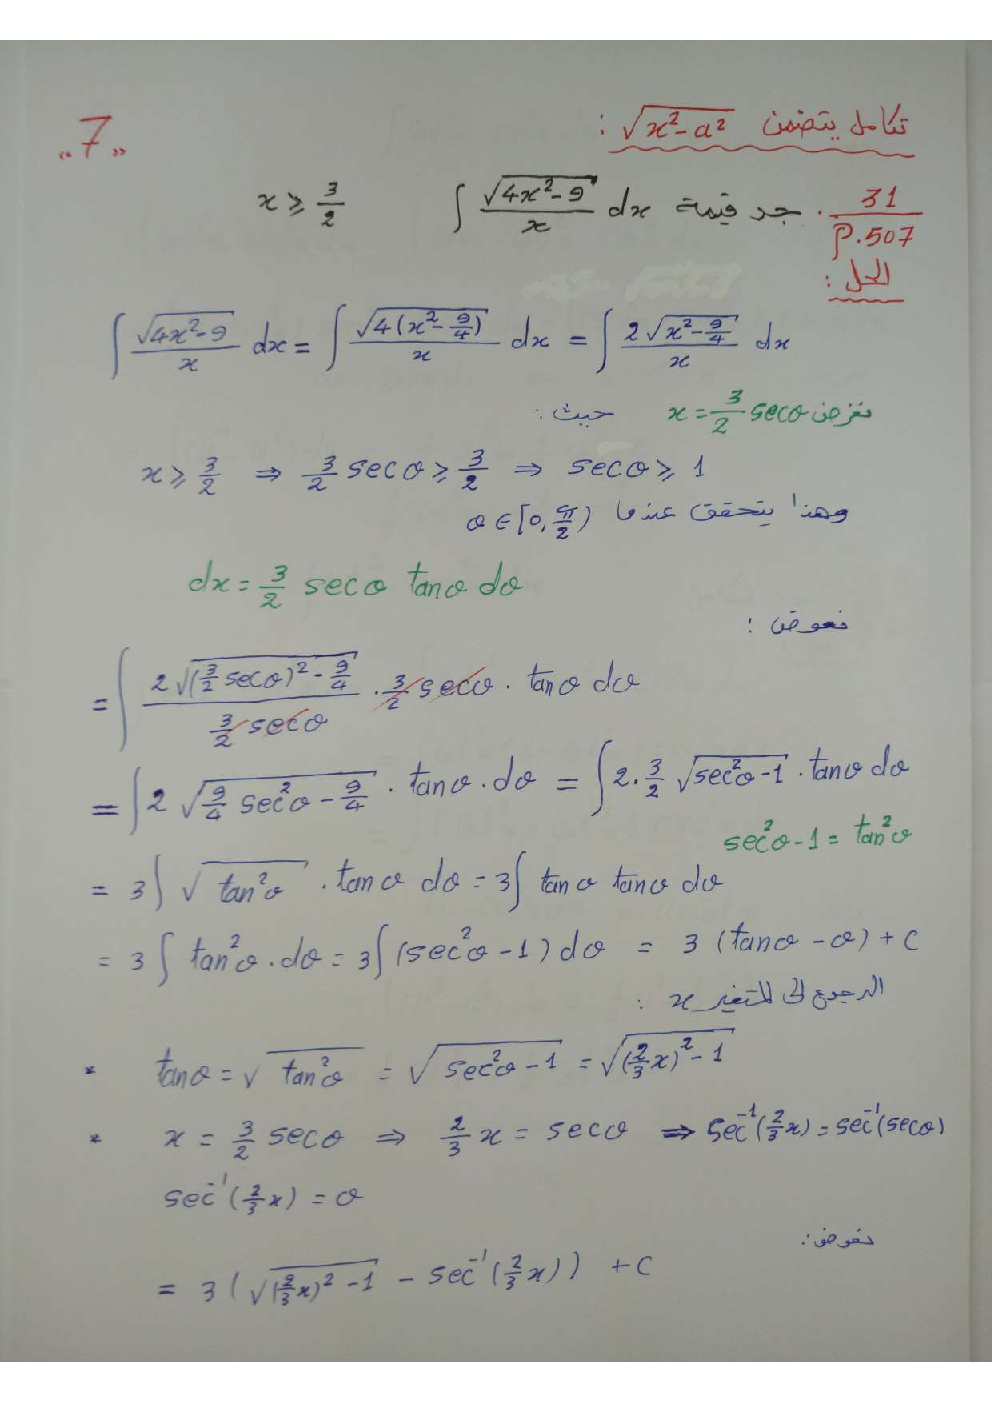 تكامل يتضمن √(x²-a²) :
"7"
31/P.507 . جد قيمة ∫ √(4x²-9)/x dx    x ≥ 3/2
الحل :
∫ √(4x²-9)/x dx = ∫ √(4(x²-9/4))/x dx = ∫ 2√(x²-9/4)/x dx
نفرض x = 3/2 secθ حيث :
x ≥ 3/2 ⇒ 3/2 secθ ≥ 3/2 ⇒ secθ ≥ 1
وهذا يتحقق عندما θ ∈ [0, π/2)
dx = 3/2 secθ tanθ dθ
نعوض :
= ∫ 2√((3/2 secθ)² - 9/4)/(3/2 secθ) · 3/2 secθ · tanθ dθ
= ∫ 2 √(9/4 sec²θ - 9/4) · tanθ · dθ = ∫ 2 · 3/2 √(sec²θ-1) · tanθ dθ
sec²θ-1 = tan²θ
= 3∫ √(tan²θ) · tanθ dθ = 3∫ tanθ tanθ dθ
= 3∫ tan²θ · dθ = 3∫ (sec²θ-1) dθ = 3 (tanθ - θ) + C
الرجوع الى المتغير x :
* tanθ = √(tan²θ) = √(sec²θ-1) = √((2/3 x)² - 1)
* x = 3/2 secθ ⇒ 2/3 x = secθ ⇒ sec⁻¹(2/3 x) = sec⁻¹(secθ)
sec⁻¹(2/3 x) = θ
نعوض :
= 3 ( √((2/3 x)² - 1) - sec⁻¹(2/3 x) ) + C